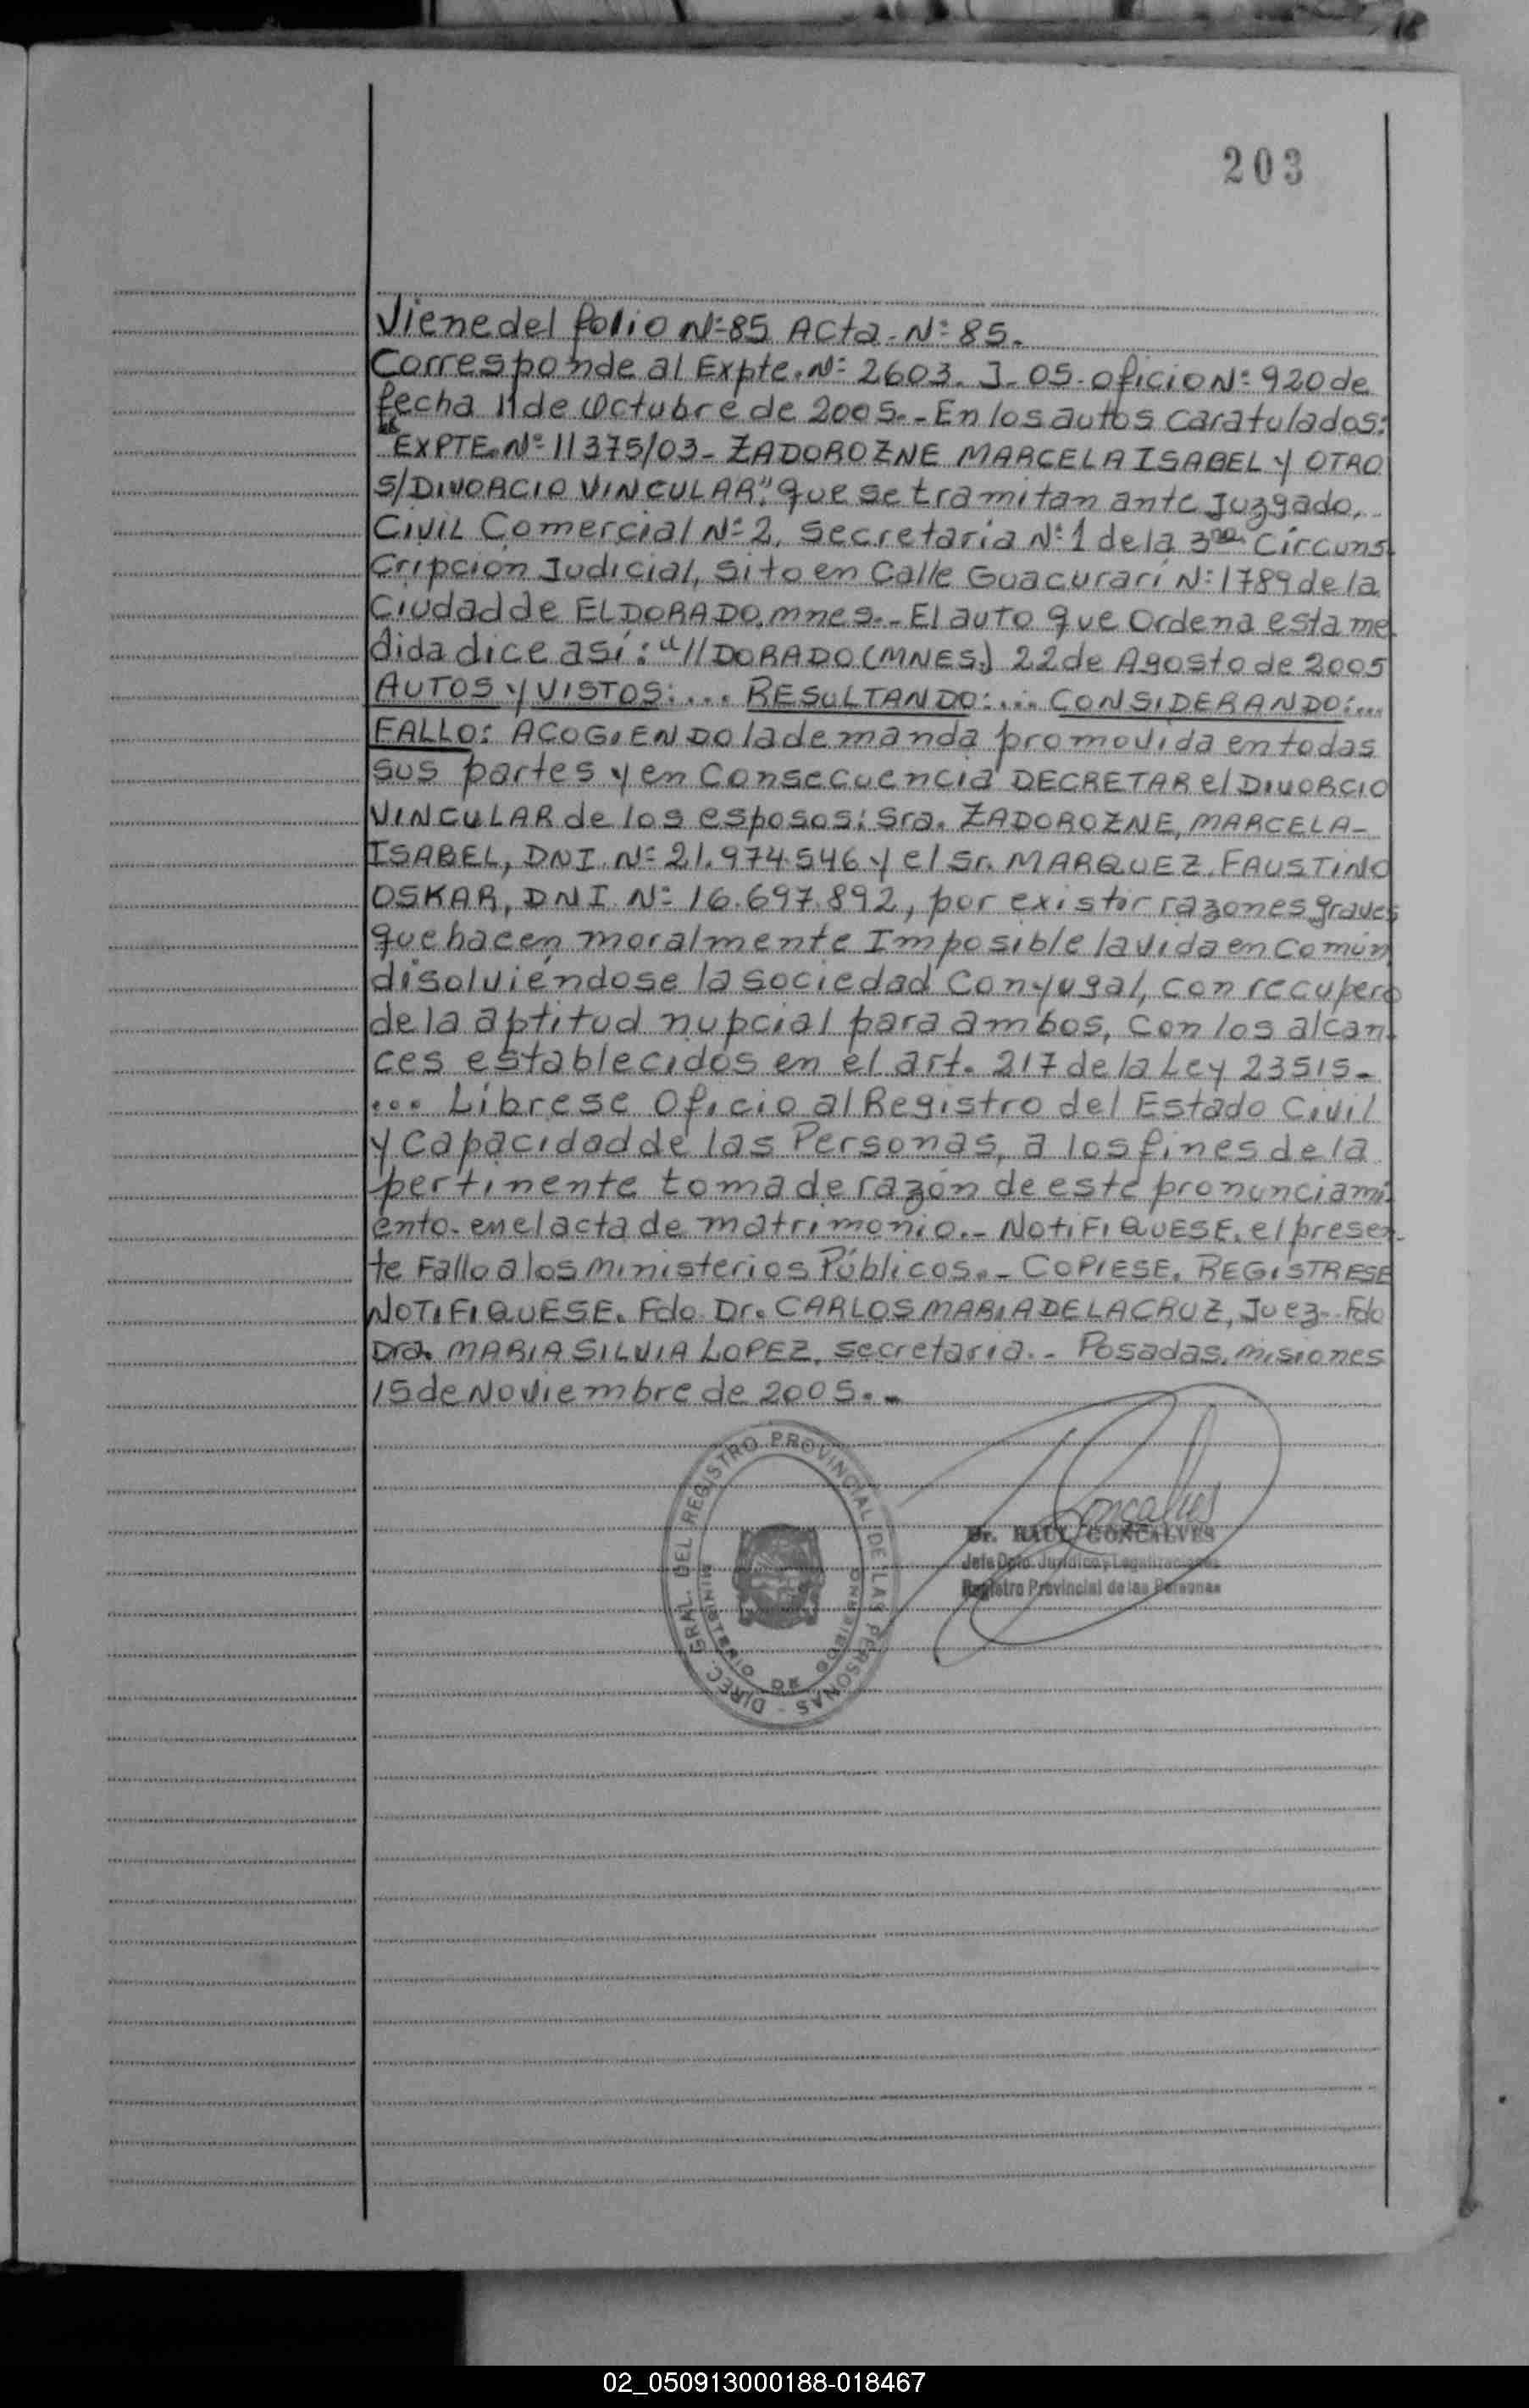 203
Viene del folio Nº 85 Acta. Nº 85.
Corresponde al Expte. Nº 2603. J- 05. oficio Nº 920 de
fecha 11 de Octubre de 2005.- En los autos caratulados:
"EXPTE. Nº 11375/03- ZADOROZNE MARCELA ISABEL y OTRO
S/DIVORCIO VINCULAR", que se tramitan ante Juzgado,
Civil Comercial Nº 2, Secretaría Nº 1 de la 3ra. Circuns-
cripción Judicial, sito en Calle Guacurarí Nº 1789 de la
Ciudad de ELDORADO, mnes.- El auto que Ordena esta me-
dida dice así: "//DORADO (MNES.) 22 de Agosto de 2005
AUTOS y VISTOS:... RESULTANDO:... CONSIDERANDO:...
FALLO: ACOGIENDO la demanda promovida en todas
sus partes y en Consecuencia DECRETAR el DIVORCIO
VINCULAR de los esposos: Sra. ZADOROZNE, MARCELA-
ISABEL, DNI. Nº 21.974.546 y el Sr. MARQUEZ, FAUSTINO
OSKAR, DNI Nº 16.697.892, por existir razones graves
que hacen moralmente Imposible la vida en común,
disolviéndose la sociedad Conyugal, con recupero
de la aptitud nupcial para ambos, con los alcan-
ces establecidos en el art. 217 de la Ley 23515-
... Líbrese Oficio al Registro del Estado Civil
y Capacidad de las Personas, a los fines de la
pertinente toma de razón de este pronunciami-
ento- en el acta de matrimonio.- NOTIFIQUESE, el presen-
te Fallo a los ministerios Públicos.- COPIESE. REGISTRESE
NOTIFIQUESE. Fdo. Dr. CARLOS MARIA DE LA CRUZ, Juez- Fdo
Dra. MARIA SILVIA LOPEZ, Secretaria.- Posadas, misiones
15 de Noviembre de 2005.-
DIREC. GRAL. DEL REGISTRO PROVINCIAL DE LAS PERSONAS
MINISTERIO DE GOBIERNO
Goncalves
Dr. RAUL GONCALVES
Jefe Dpto. Jurídico y Legalizaciones
Registro Provincial de las Personas
02_050913000188-018467